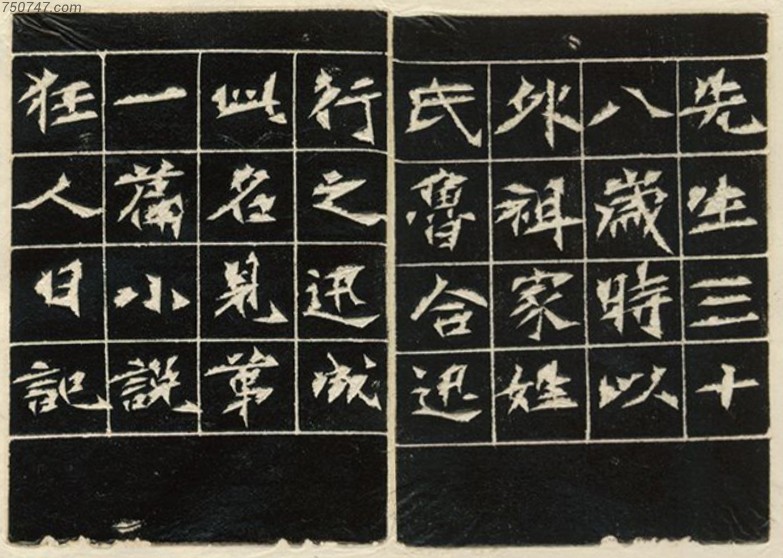 750747.com
先生三十
八歲時以
外祖家姓
氏魯合迅
行之迅成
此名見第
一篇小說
狂人日記